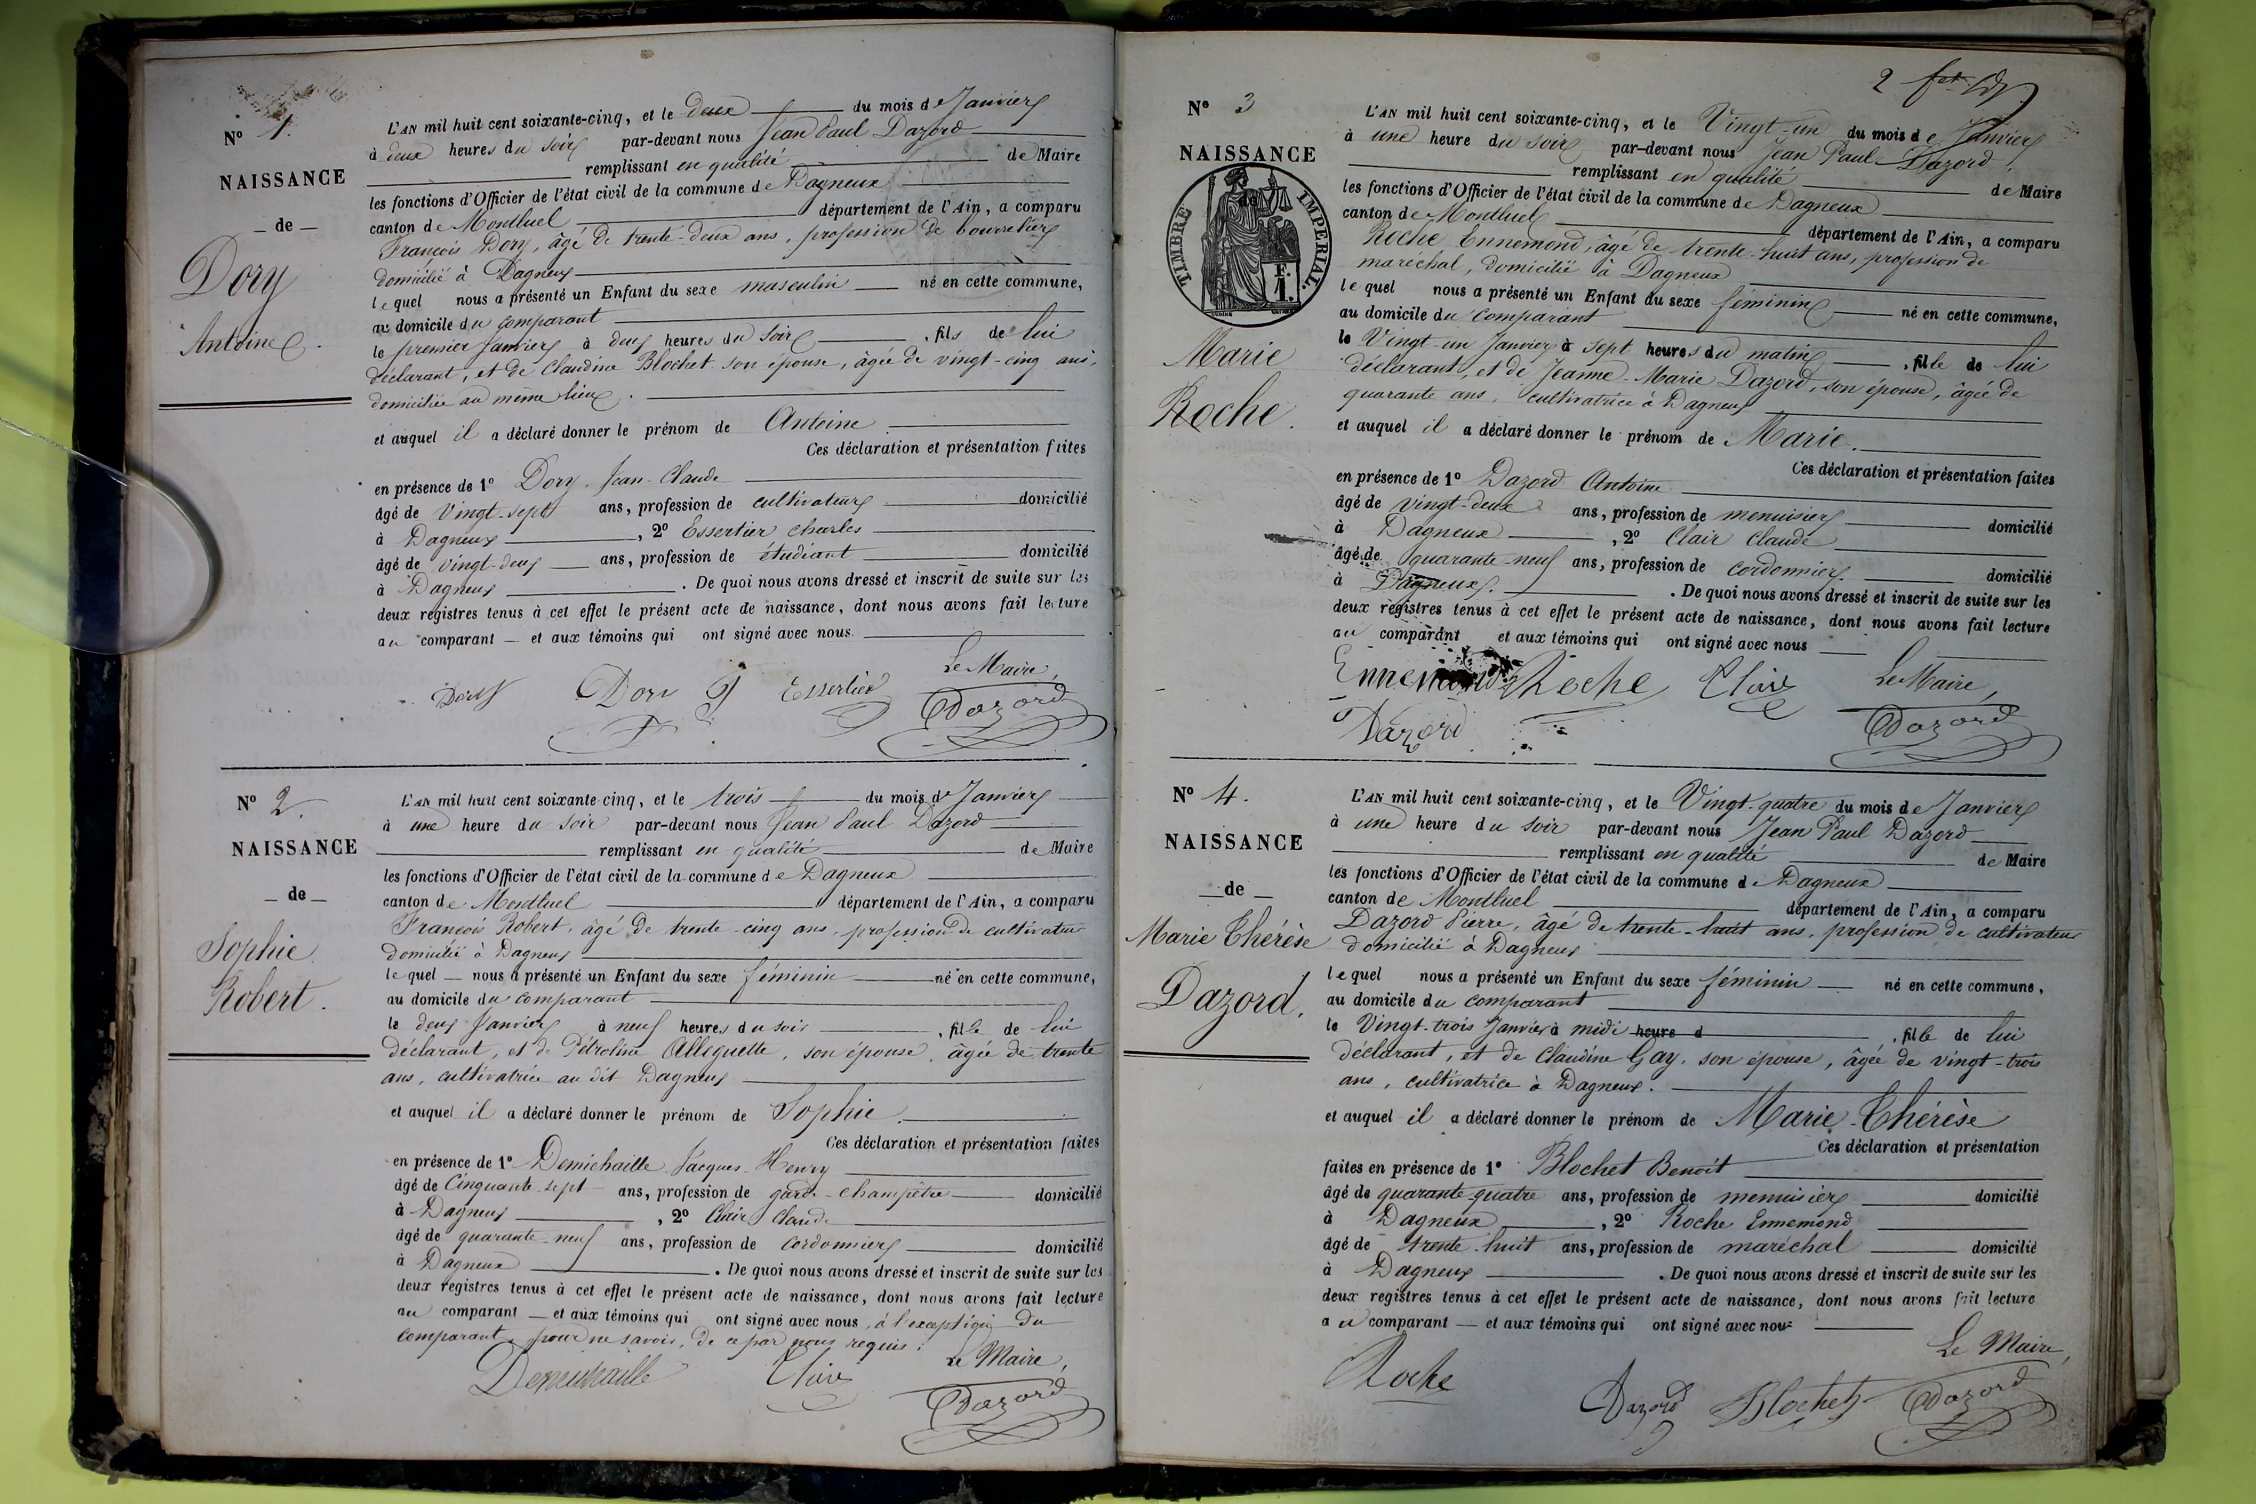 N° 1.
NAISSANCE
— de —
Dory
Antoine.
L'AN mil huit cent soixante-cinq, et le deux du mois de Janvier
à deux heures du soir par-devant nous Jean Paul Dazord
remplissant en qualité de Maire
les fonctions d'Officier de l'état civil de la commune de Dagneux
canton de Montluel département de l'Ain, a comparu
François Dory, âgé de trente-deux ans, profession de bourrelier
domicilié à Dagneux
lequel nous a présenté un Enfant du sexe masculin né en cette commune,
au domicile du comparant
le premier Janvier à deux heures du soir, fils de lui
déclarant, et de Claudine Blochet son épouse, âgée de vingt-cinq ans,
domiciliée au même lieu.
et auquel il a déclaré donner le prénom de Antoine.
Ces déclaration et présentation faites
en présence de 1° Dory Jean-Claude
âgé de vingt-sept ans, profession de cultivateur domicilié
à Dagneux, 2° Essertier Charles
âgé de vingt-deux ans, profession de étudiant domicilié
à Dagneux. De quoi nous avons dressé et inscrit de suite sur les
deux registres tenus à cet effet le présent acte de naissance, dont nous avons fait lecture
au comparant — et aux témoins qui ont signé avec nous.
Le Maire,
Dory Dory J Essertier Dazord
N° 2.
NAISSANCE
— de —
Sophie
Robert.
L'AN mil huit cent soixante-cinq, et le trois du mois de Janvier
à une heure du soir par-devant nous Jean Paul Dazord
remplissant en qualité de Maire
les fonctions d'Officier de l'état civil de la commune de Dagneux
canton de Montluel département de l'Ain, a comparu
François Robert, âgé de trente-cinq ans, profession de cultivateur
domicilié à Dagneux
lequel — nous a présenté un Enfant du sexe féminin né en cette commune,
au domicile du comparant
le deux Janvier à neuf heures du soir, fille de lui
déclarant, et de Pétroline Alleguette, son épouse, âgée de trente
ans, cultivatrice au dit Dagneux
et auquel il a déclaré donner le prénom de Sophie.
Ces déclaration et présentation faites
en présence de 1° Demichaille Jacques-Henry
âgé de Cinquante-sept ans, profession de garde-champêtre domicilié
à Dagneux, 2° Clair Claude
âgé de quarante-neuf ans, profession de cordonnier domicilié
à Dagneux. De quoi nous avons dressé et inscrit de suite sur les
deux registres tenus à cet effet le présent acte de naissance, dont nous avons fait lecture
au comparant — et aux témoins qui ont signé avec nous, à l'exception du
comparant, pour ne savoir, de ce par nous requis.
Le Maire,
Demichaille Clair Dazord
2
N° 3
NAISSANCE
TIMBRE IMPERIAL.
F.
1.
Marie
Roche.
L'AN mil huit cent soixante-cinq, et le Vingt-un du mois de Janvier
à une heure du soir par-devant nous Jean Paul Dazord,
remplissant en qualité de Maire
les fonctions d'Officier de l'état civil de la commune de Dagneux
canton de Montluel département de l'Ain, a comparu
Roche Ennemond, âgé de trente-huit ans, profession de
maréchal, domicilié à Dagneux
lequel nous a présenté un Enfant du sexe féminin né en cette commune,
au domicile du comparant
le Vingt-un Janvier à sept heures du matin, fille de lui
déclarant, et de Jeanne-Marie Dazord, son épouse, âgée de
quarante ans, cultivatrice à Dagneux
et auquel il a déclaré donner le prénom de Marie.
Ces déclaration et présentation faites
en présence de 1° Dazord Antoine
âgé de vingt-deux ans, profession de menuisier domicilié
à Dagneux, 2° Clair Claude
âgé de quarante-neuf ans, profession de cordonnier domicilié
à Dagneux. De quoi nous avons dressé et inscrit de suite sur les
deux registres tenus à cet effet le présent acte de naissance, dont nous avons fait lecture
au comparant et aux témoins qui ont signé avec nous
Ennemond Roche Clair Le Maire,
Dazord Dazord
N° 4.
NAISSANCE
— de —
Marie Thérèse
Dazord.
L'AN mil huit cent soixante-cinq, et le Vingt-quatre du mois de Janvier
à une heure du soir par-devant nous Jean Paul Dazord
remplissant en qualité de Maire
les fonctions d'Officier de l'état civil de la commune de Dagneux
canton de Montluel département de l'Ain, a comparu
Dazord Pierre, âgé de trente-huit ans, profession de cultivateur
domicilié à Dagneux
lequel nous a présenté un Enfant du sexe féminin né en cette commune,
au domicile du comparant
le Vingt-trois Janvier à midi heure d, fille de lui
déclarant, et de Claudine Gay, son épouse, âgée de vingt-trois
ans, cultivatrice à Dagneux.
et auquel il a déclaré donner le prénom de Marie-Thérèse
Ces déclaration et présentation
faites en présence de 1° Blochet Benoit
âgé de quarante-quatre ans, profession de menuisier domicilié
à Dagneux, 2° Roche Ennemond
âgé de trente-huit ans, profession de maréchal domicilié
à Dagneux. De quoi nous avons dressé et inscrit de suite sur les
deux registres tenus à cet effet le présent acte de naissance, dont nous avons fait lecture
au comparant — et aux témoins qui ont signé avec nous
Le Maire,
Roche Dazord Blochet Dazord